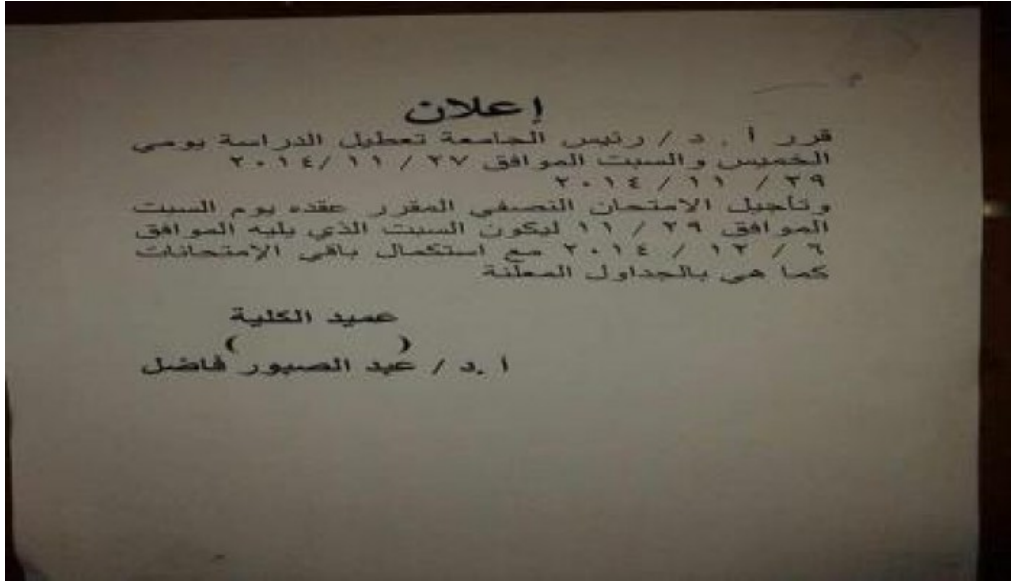 إعلان
قرر أ . د / رئيس الجامعة تعطيل الدراسة يومي
الخميس والسبت الموافق ٢٧ / ١١ /٢٠١٤
٢٩ / ١١ / ٢٠١٤
وتأجيل الامتحان النصفى المقرر عقده يوم السبت
الموافق ٢٩ / ١١ ليكون السبت الذي يليه الموافق
٦ / ١٢ / ٢٠١٤ مع استكمال باقي الامتحانات
كما هي بالجداول المعلنة
عميد الكلية
( )
أ .د / عبد الصبور فاضل